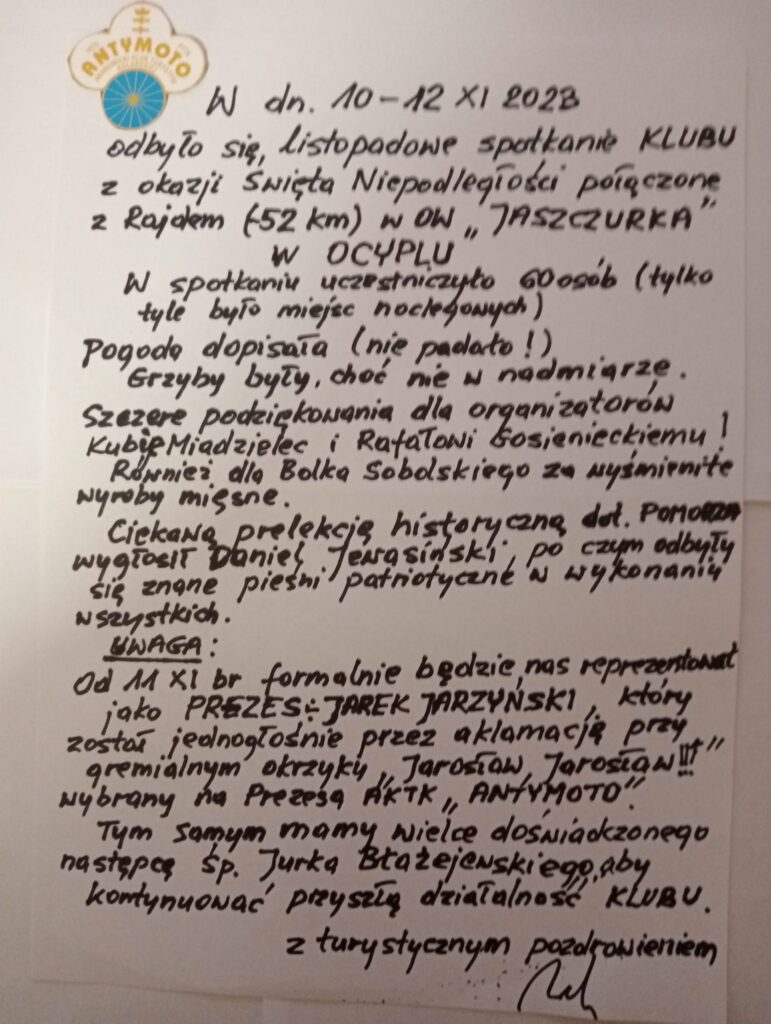 ANTYMOTO
W dn. 10-12 XI 2023
odbyło się, listopadowe spotkanie KLUBU
z okazji Święta Niepodległości połączone
z Rajdem (-52 km) w OW „JASZCZURKA"
W OCYPLU
W spotkaniu uczestniczyło 60 osób (tylko
tyle było miejsc noclegowych)
Pogoda dopisała (nie padało!)
Grzyby były, choć nie w nadmiarze.
Szczere podziękowania dla organizatorów
Kubie Miadzielec i Rafałowi Gosienieckiemu!
Również dla Bolka Sobolskiego za wyśmienite
wyroby mięsne.
Ciekaną prelekcję historyczną dot. POMORZA
wygłosił Daniel, po czym odbyły
się znane pieśni patriotyczne w wykonaniu
wszystkich.
UWAGA:
Od 11 XI br formalnie będzie nas reprezentował
jako PREZES÷JAREK JARZYŃSKI, który
został jednogłośnie przez aklamację przy
gremialnym okrzyku „Jarosław, Jarosław!!!"
wybrany na Prezesa AKTK „ANTYMOTO".
Tym samym mamy wielce doświadczonego
następcę śp. Jurka Błażejewskiego, aby
kontynuować przyszłą działalność KLUBU.
z turystycznym pozdrowieniem